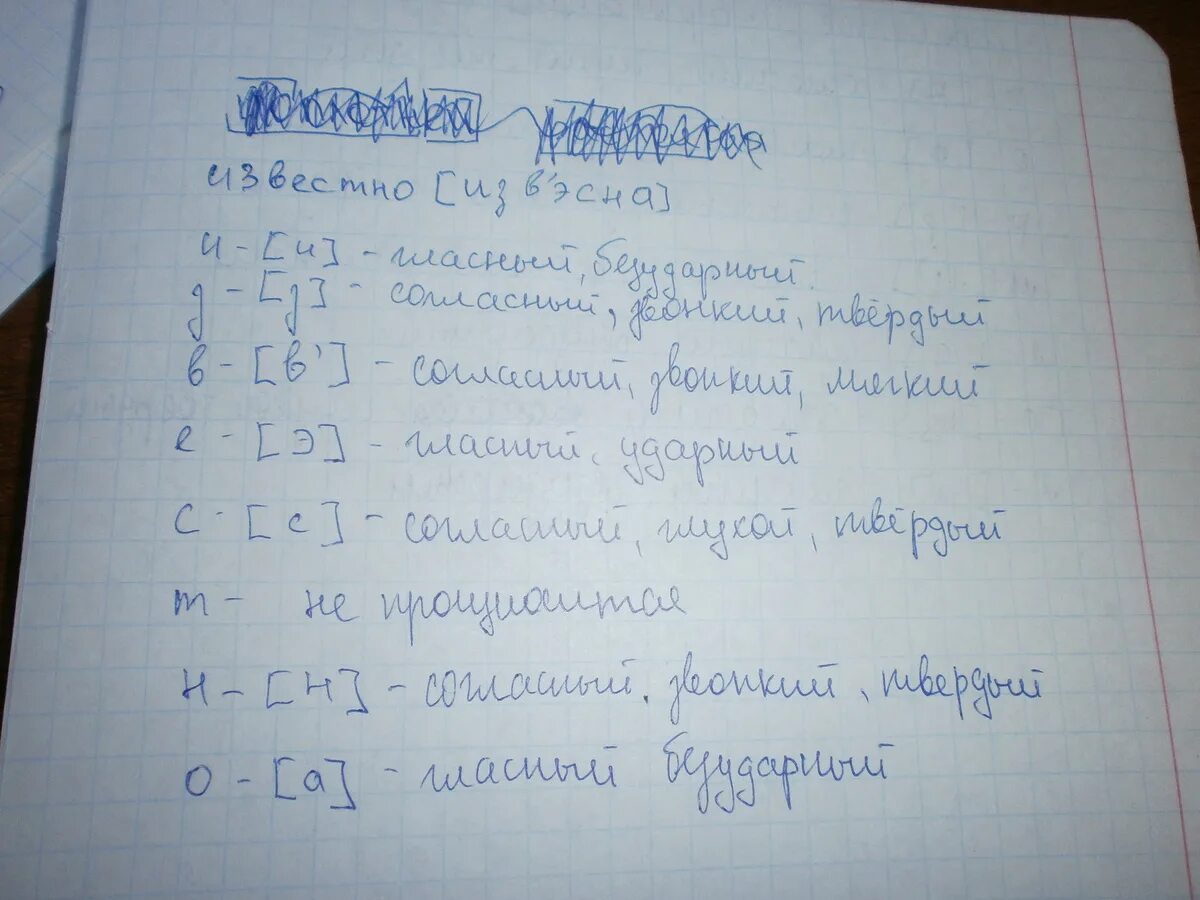 известно [из в'эсна]
и - [и] - гласный, безударный.
з - [з] - согласный, звонкий, твёрдый
в - [в'] - согласный, звонкий, мягкий
е - [э] - гласный, ударный
с - [с] - согласный, глухой, твёрдый
т - не произносится
н - [н] - согласный, звонкий, твердый
о - [а] - гласный безударный